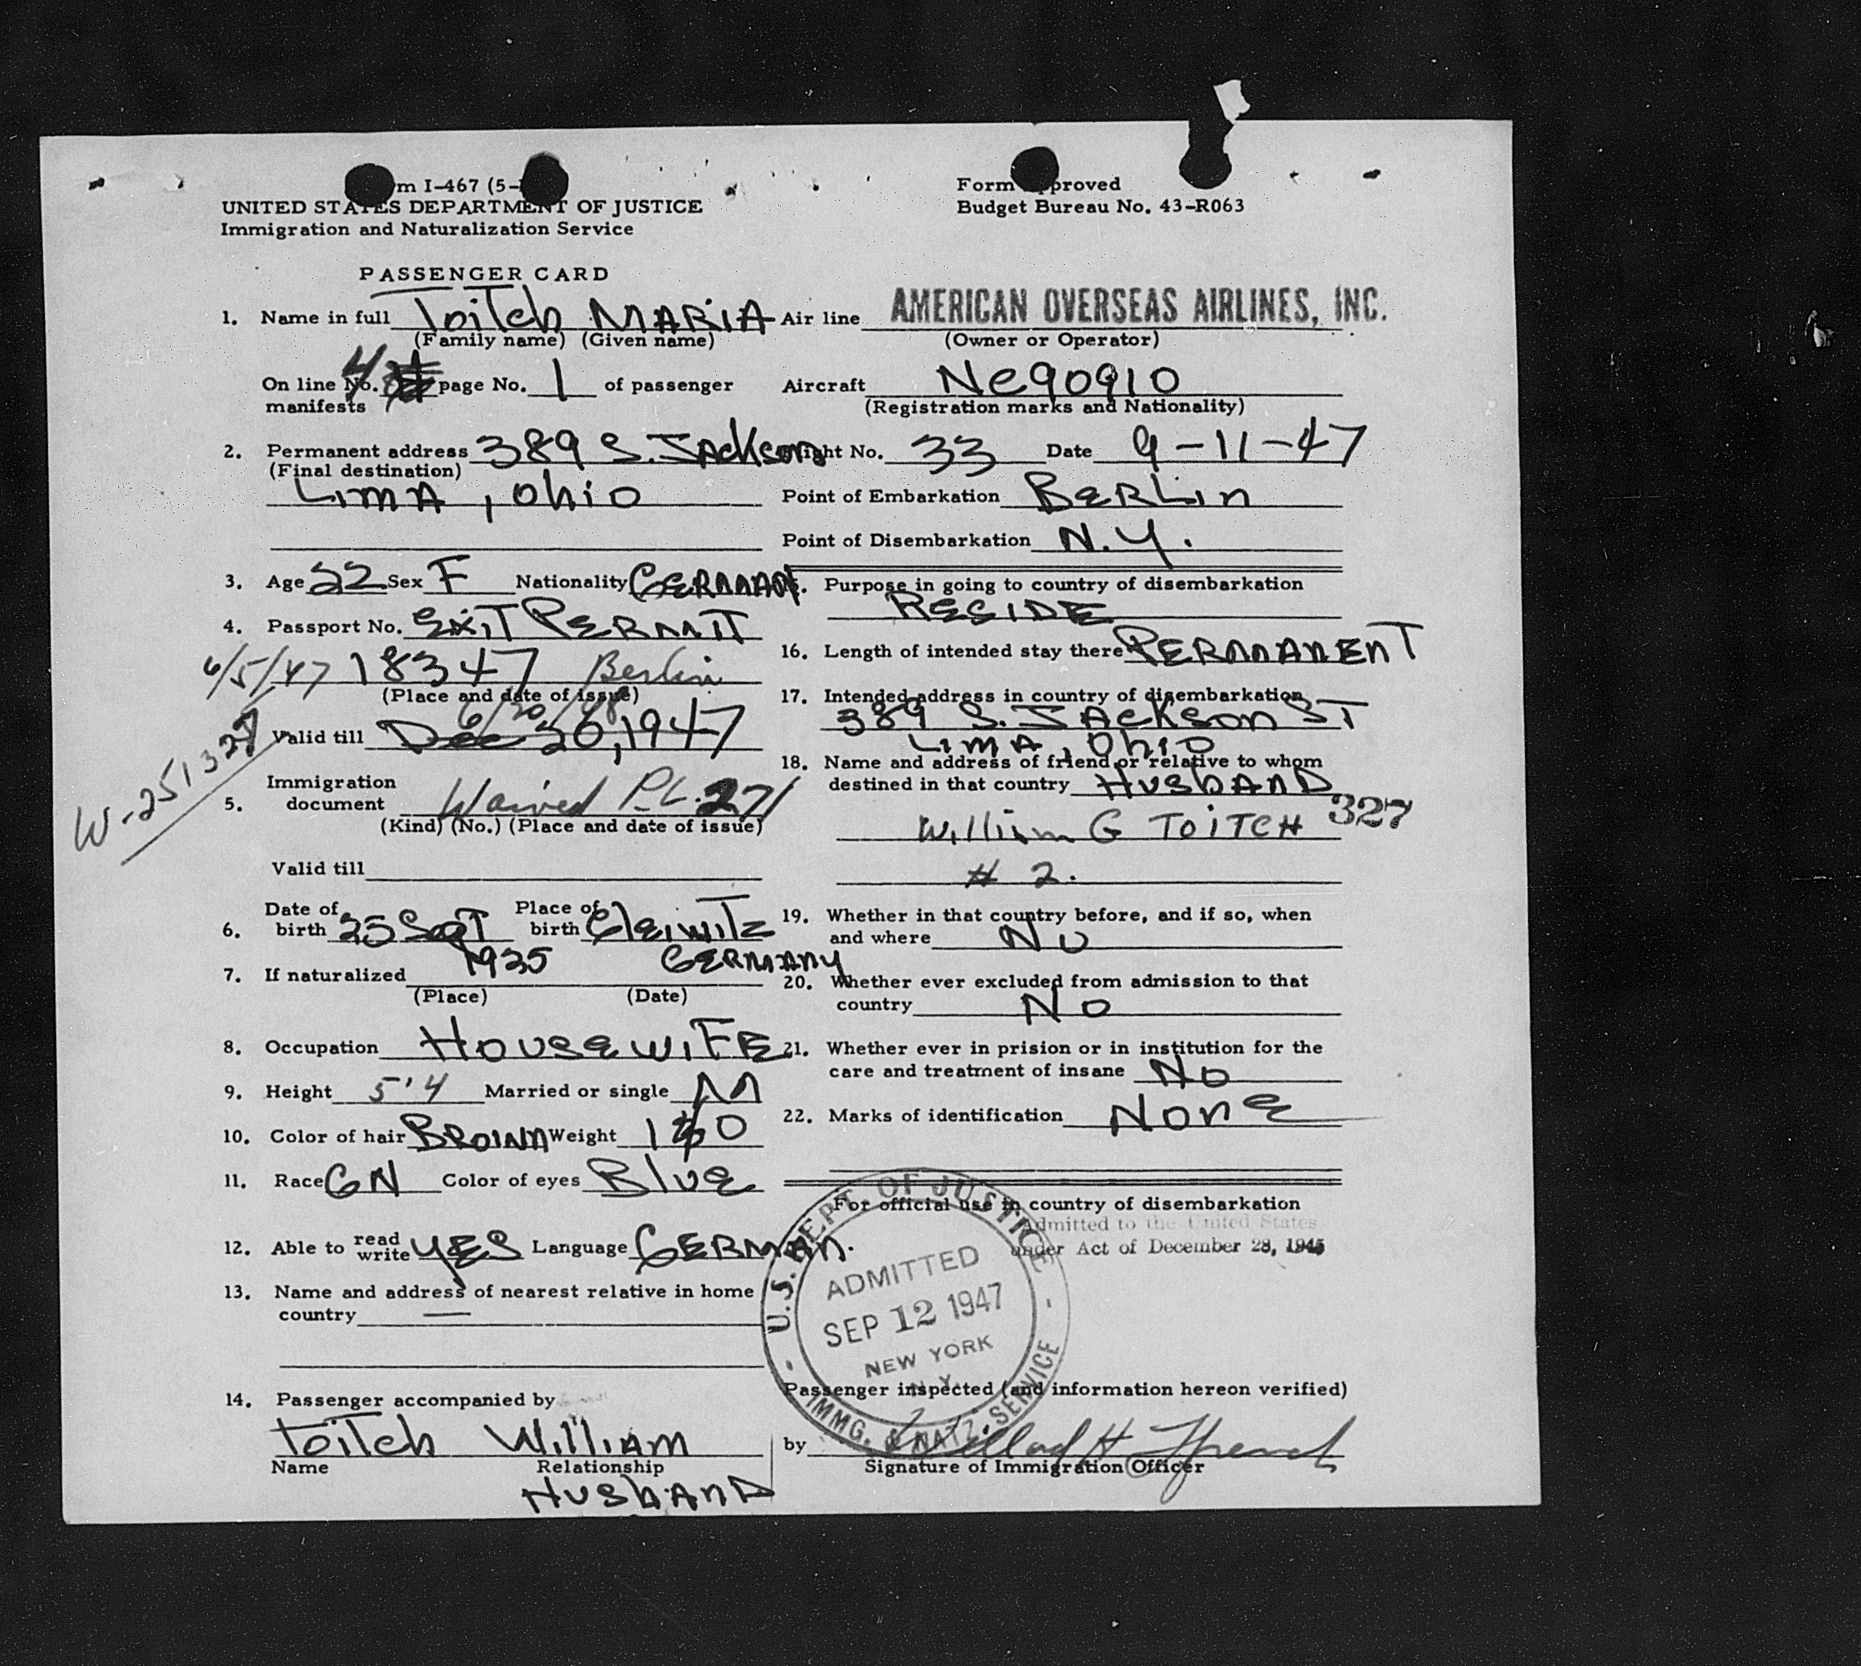 m I-467 (5-
UNITED STATES DEPARTMENT OF JUSTICE
Immigration and Naturalization Service
Form Approved
Budget Bureau No. 43-R063
PASSENGER CARD
1. Name in full Toitch MARiA
(Family name) (Given name)
4
On line No. page No. 1 of passenger
manifests
2. Permanent address 389 S. JAckson
(Final destination)
LimA, Ohio
3. Age 22 Sex F Nationality GERMAN
4. Passport No. exiT PERMiT
6/5/47 18347 Berlin
(Place and date of issue)
6/20/48
Valid till Dec 20, 1947
W-251327
Immigration
5. document Waived P.L. 271
(Kind) (No.) (Place and date of issue)
Valid till
Date of Place of
6. birth 25 SepT birth GleiwiTz
1925 GERMANY
7. If naturalized
(Place) (Date)
8. Occupation HousewiFE
9. Height 5'4 Married or single M
10. Color of hair BROWN Weight
11. Race GN Color of eyes Blue
12. Able to read write YES Language GERMAN.
13. Name and address of nearest relative in home
country —
14. Passenger accompanied by
Toitch William
Name Relationship
HusbAnD
Air line AMERICAN OVERSEAS AIRLINES, INC.
(Owner or Operator)
Aircraft Nc90910
(Registration marks and Nationality)
Flight No. 33 Date 9-11-47
Point of Embarkation BERLin
Point of Disembarkation N.Y.
Purpose in going to country of disembarkation
RESIDE
16. Length of intended stay there PERMANENT
17. Intended address in country of disembarkation
389 S. JAckson ST
LimA, Ohio
18. Name and address of friend or relative to whom
destined in that country HusbAnD
William G TOiTCH 327
# 2.
19. Whether in that country before, and if so, when
and where No
20. Whether ever excluded from admission to that
country No
21. Whether ever in prision or in institution for the
care and treatment of insane No
22. Marks of identification None
For official use in country of disembarkation
Admitted to the United States
under Act of December 28, 1945
U.S. DEPT. OF JUSTICE
ADMITTED
SEP 12 1947
NEW YORK
N.Y.
IMMG. & NATZ. SERVICE
Passenger inspected (and information hereon verified)
by Willard H.
Signature of Immigration Officer